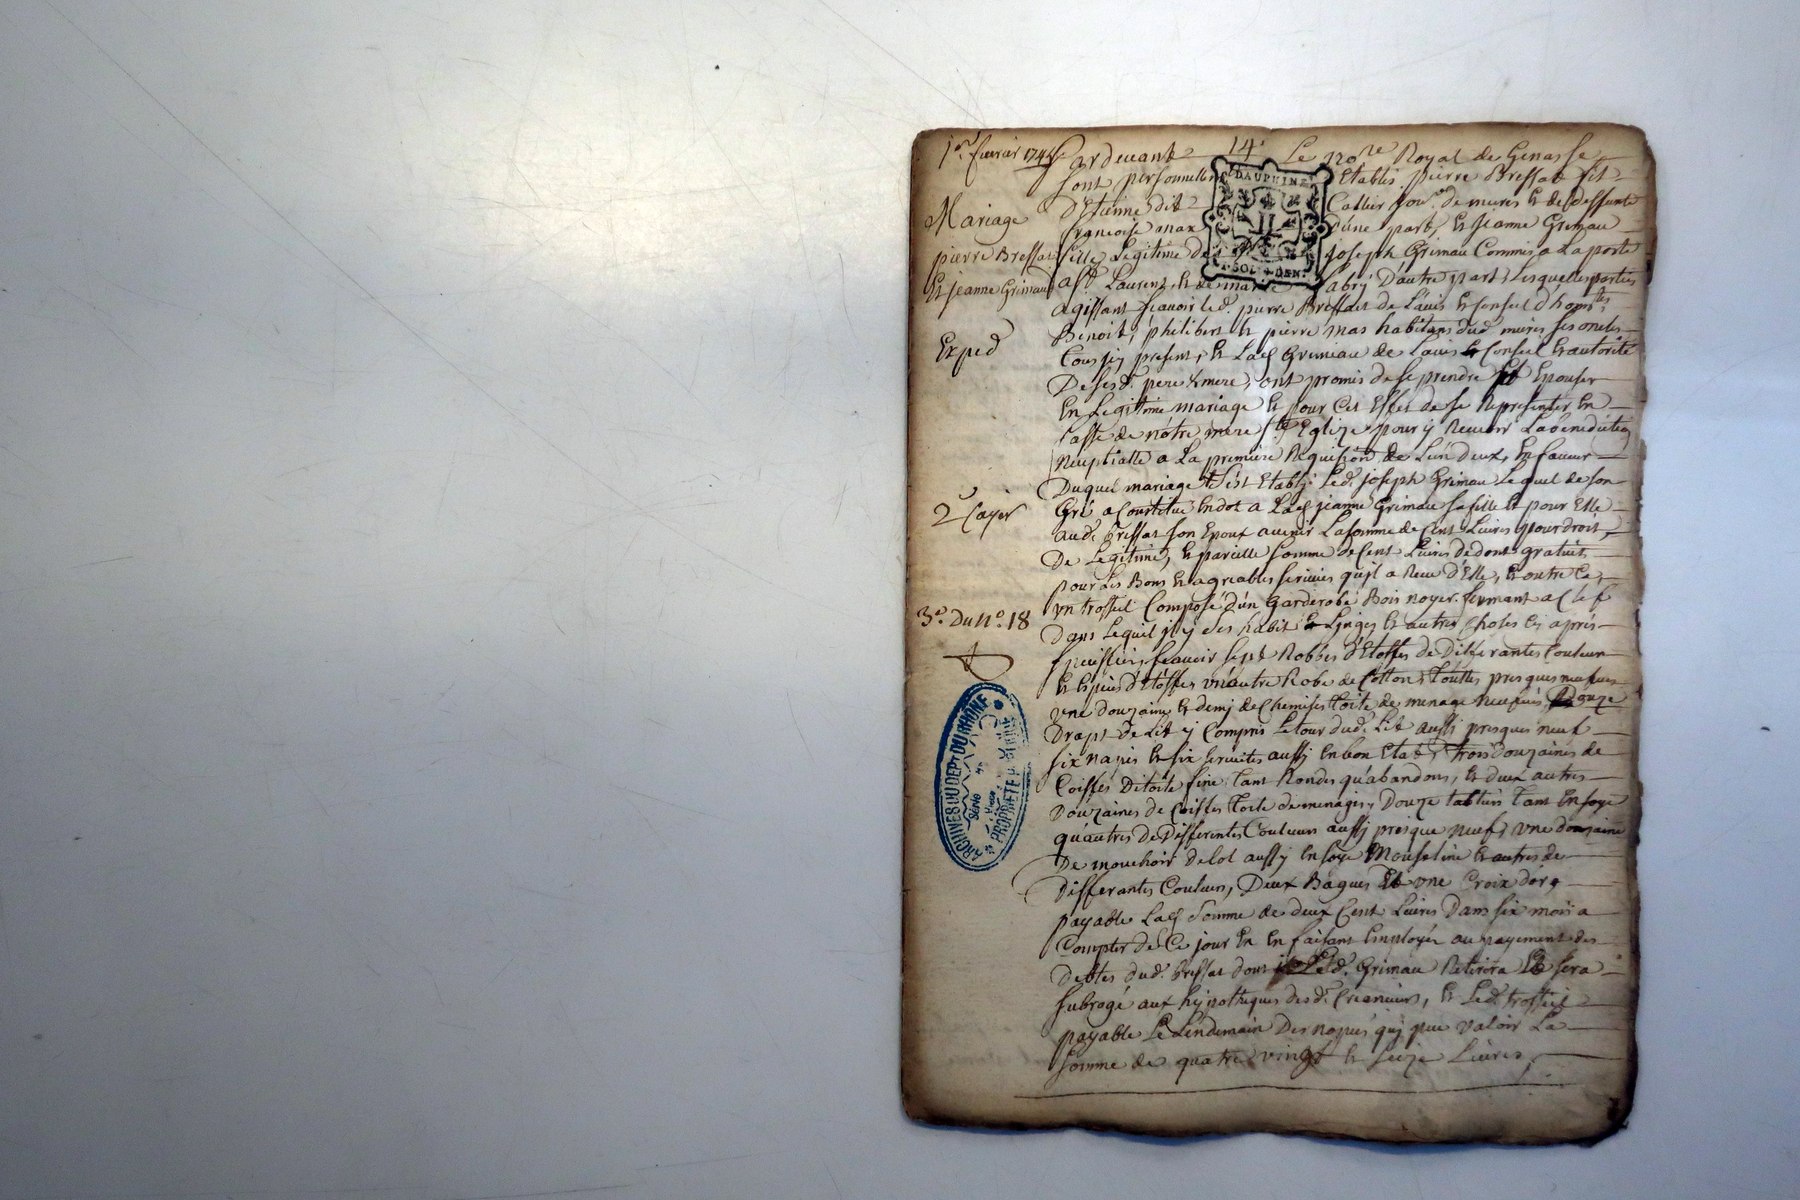 1er fevrier 174
14.
Pardevant Le no.re Royal de Genas se
sont personnelle Etablis pierre Bressat fils
Mariage
d'Etienne dit Callier de mures & de deffunte
francoise mas d'une part, & Jeanne Grimau
pierre Bressat
fille Legitime de Joseph Grimau Commis a La porte
& jeanne Grimau
St Laurent, & de D'autre part, Lesquelles parties
agissant scavoir led. pierre Bressat de L'avis & Conseil d'hon.tes
Benoit, philibert & pierre mas habitans dud. mures ses oncles
Exped
Cous jcy presents, & Lad. Grimau de Lavis & Conseil & autorité
De sesd. pere & mere, ont promis de se prendre & Epouser
En Legittime mariage & pour Cet Effet de se Representer En
face de notre mere Ste Eglize pour y Recevoir La benediction
Nuptialle a La premiere Requision de L'un deux, En faveur
Duquel mariage s'est Etably led. joseph Grimau Lequel de son
2e Cayer
Gré a Constitué En dot a Lad. jeanne Grimau sa fille & pour Elle
aud. Bressat son Epoux avenir La somme de Cent Livres pour droit
De Legitime, & pareille somme de Cent Livres de dont gratuit
pour Les Bons & agreables services qu'jl a Receu d'Elle, & outre Ce
un trossel Composé d'un Garderobe Bois noyer fermant a Clef
3e. Du No. 18
Dans Lequel jl y a ses habits & Linges & autres Choses Cy aprés
specifiées scavoir sept Robbes d'Etoffes de Differantes Couleurs
& Especes d'Etoffes un autre Robe de Cotton, Touttes presques neufves
une douzaine & demj de Chemises toile de menage neufves, Douze
Draps de Lit y Compris Le tour dud. Lit aussy presques neuf
six napes & six serviettes aussy En bon Etat, trois Douzaines de
Coiffes De toile fine tant Rondes qu'abandons, & deux autres
Douzaines de Coiffes toile de menages, Douze tabliers tant En soye
qu'autres de Differentes Couleurs aussy presque neufs, une douzaine
De mouchoir de Col aussy En soye Mouseline & autres de
differantes Couleurs, Deux Bagues & une Croix dor,
payable Lad. Somme de deux Cent Livres Dans six mois a
Compter de Ce jour En En faisant Employer au payement des
Debtes dud. Bressat dont Led. Grimau Retirera & sera
subrogé aux hypotheques desd. Creanciers, & Led. trossel
payable Le Lendemain Des nopces qui peut valoir La
somme de quatre vingt & seize Livres,
DAUPHINE
SOL DEN
ARCHIVES DU DEPT DU RHÔNE
Série
PROPRIETE PUBLIQUE